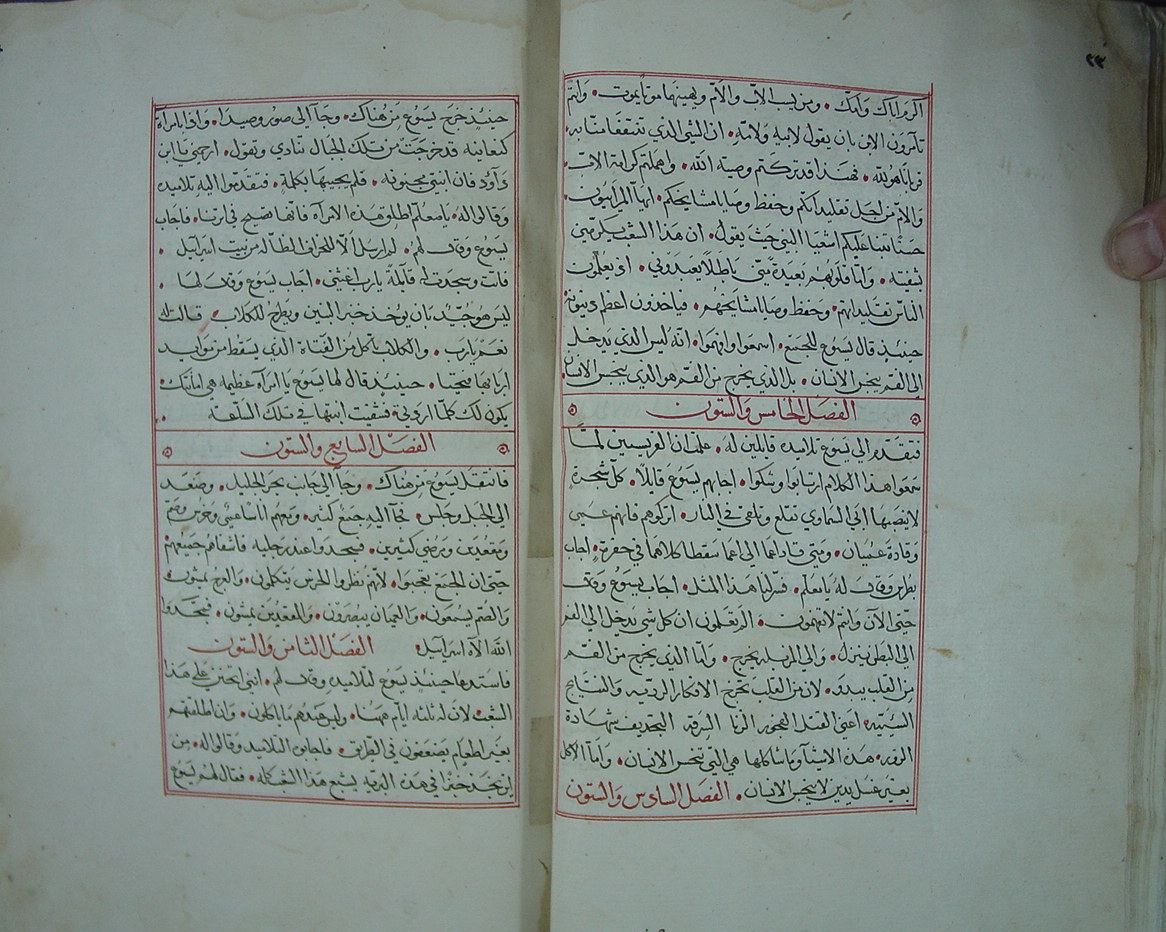 ٢٣
اكرم اباك وامك • ومن يسب الاب والام ويهينهما موتا يموت • وانتم
تامرون الابن بان يقول لابيه ولامه • ان الشي الذي تنتفعا منا به
قربانا هو لله • فهذا قد تركتم وصية الله • واهملتم كرامة الاب
والام من اجل تقليداتكم وحفظ وصايا مشايخكم • ايها المراييون
حسنا تنبا عليكم اشعيا النبي حيث يقول • ان هذا الشعب يكرمني
بشفتيه • واما قلوبهم بعيدة مني باطلا يعبدوني • اذ يعلمون
الناس تقليداتهم • وحفظ وصايا مشايخهم • فياخذون اعظم دينونة
حينيذ قال يسوع للجمع • اسمعوا وافهموا • انه ليس الذي يدخل
الي الفم ينجس الانسان • بل الذي يخرج من الفم هو الذي ينجس الانسان
الفصل الخامس والستون
فتقدم الي يسوع تلاميذه قايلين له • علمت ان الفريسيين لما
سمعوا هذا الكلام ارتابوا وشكوا • اجابهم يسوع قايلا • كل شجرة
لا ينصبها ابي السماوي تقلع وتلقي في النار • اتركوهم فانهم عمي
وقادة عميان • ومتي قاد اعما الي اعما سقطا كلاهما في حفرة • اجاب
بطرس وقال له يا معلم • فسر لنا هذا المثل • اجاب يسوع وقال
حتي الآن وانتم لا تفهمون • الم تعلمون ان كل شي يدخل الي الفم
الي البطن ينزل • والي المزبله يخرج • واما الذي يخرج من الفم
من القلب يبدو • لان من القلب تخرج الافكار الرديه والنتايج
السييه • اعني القتل الفجور الزنا السرقه التجديف شهادة
الزور • هذه الاشيآ وما شاكلها هي التي تنجس الانسان • واما الاكل
بغير غسل يدين لا ينجس الانسان • الفصل السادس والستون
حينيذ خرج يسوع من هناك • وجآ الي صور وصيدا • واذا بامراة
كنعانيه قد خرجت من تلك الجبال تنادي وتقول • ارحمني يا ابن
داوود فان ابنتي مجنونه • فلم يجيبها بكلمة • فتقدموا اليه تلاميذه
وقالوا له • يا معلم اطلق هذه الامراة فانها تصيح في اثرنا • فاجاب
يسوع وقال لهم • لم ارسل الا للخراف الضاله من بيت اسراييل
فاتت وسجدت له قايلة يا رب اغثني • اجاب يسوع وقال لها •
ليس هو جيد بان يوخذ خبز البنين ويطرح للكلاب • قالت له
نعم يا رب • والكلاب تاكل من الفتاة الذي يسقط من موايد
اربابها فتحيا • حينيذ قال لها يسوع يا امراه عظيمة هي امانتك •
يكون لك كلما اردتي • فشفيت ابنتها في تلك الساعة
الفصل السابع والستون
فانتقل يسوع من هناك • وجآ الي جانب بحر الجليل • وصعد
الي الجبل وجلس • فجآ اليه جمع كثير • ومعهم اناسا عمي وخرس وصم
ومقعدين ومرضي كثيرين • فسجدوا عند رجليه فاشفاهم جميعهم
حتي ان الجمع تعجبوا • لانهم نظروا الخرس يتكلمون • والعرج يمشون
والصم يسمعون • والعميان يبصرون • والمقعدين يمشون • فمجدوا
الله الاه اسراييل • الفصل الثامن والستون
فاستدعا حينيذ يسوع لتلاميذه وقال لهم • انني اتحنن علي هذا
الشعب • لان له ثلثة ايام ههنا • وليس عندهم ما ياكلون • وان اطلقتهم
بغير اطعام يضعفون في الطريق • فاجابوا التلاميذ وقالوا له • من
اين نجد خبزا في هذه البريه يشبع هذا الشعب كله • فقال لهم يسوع